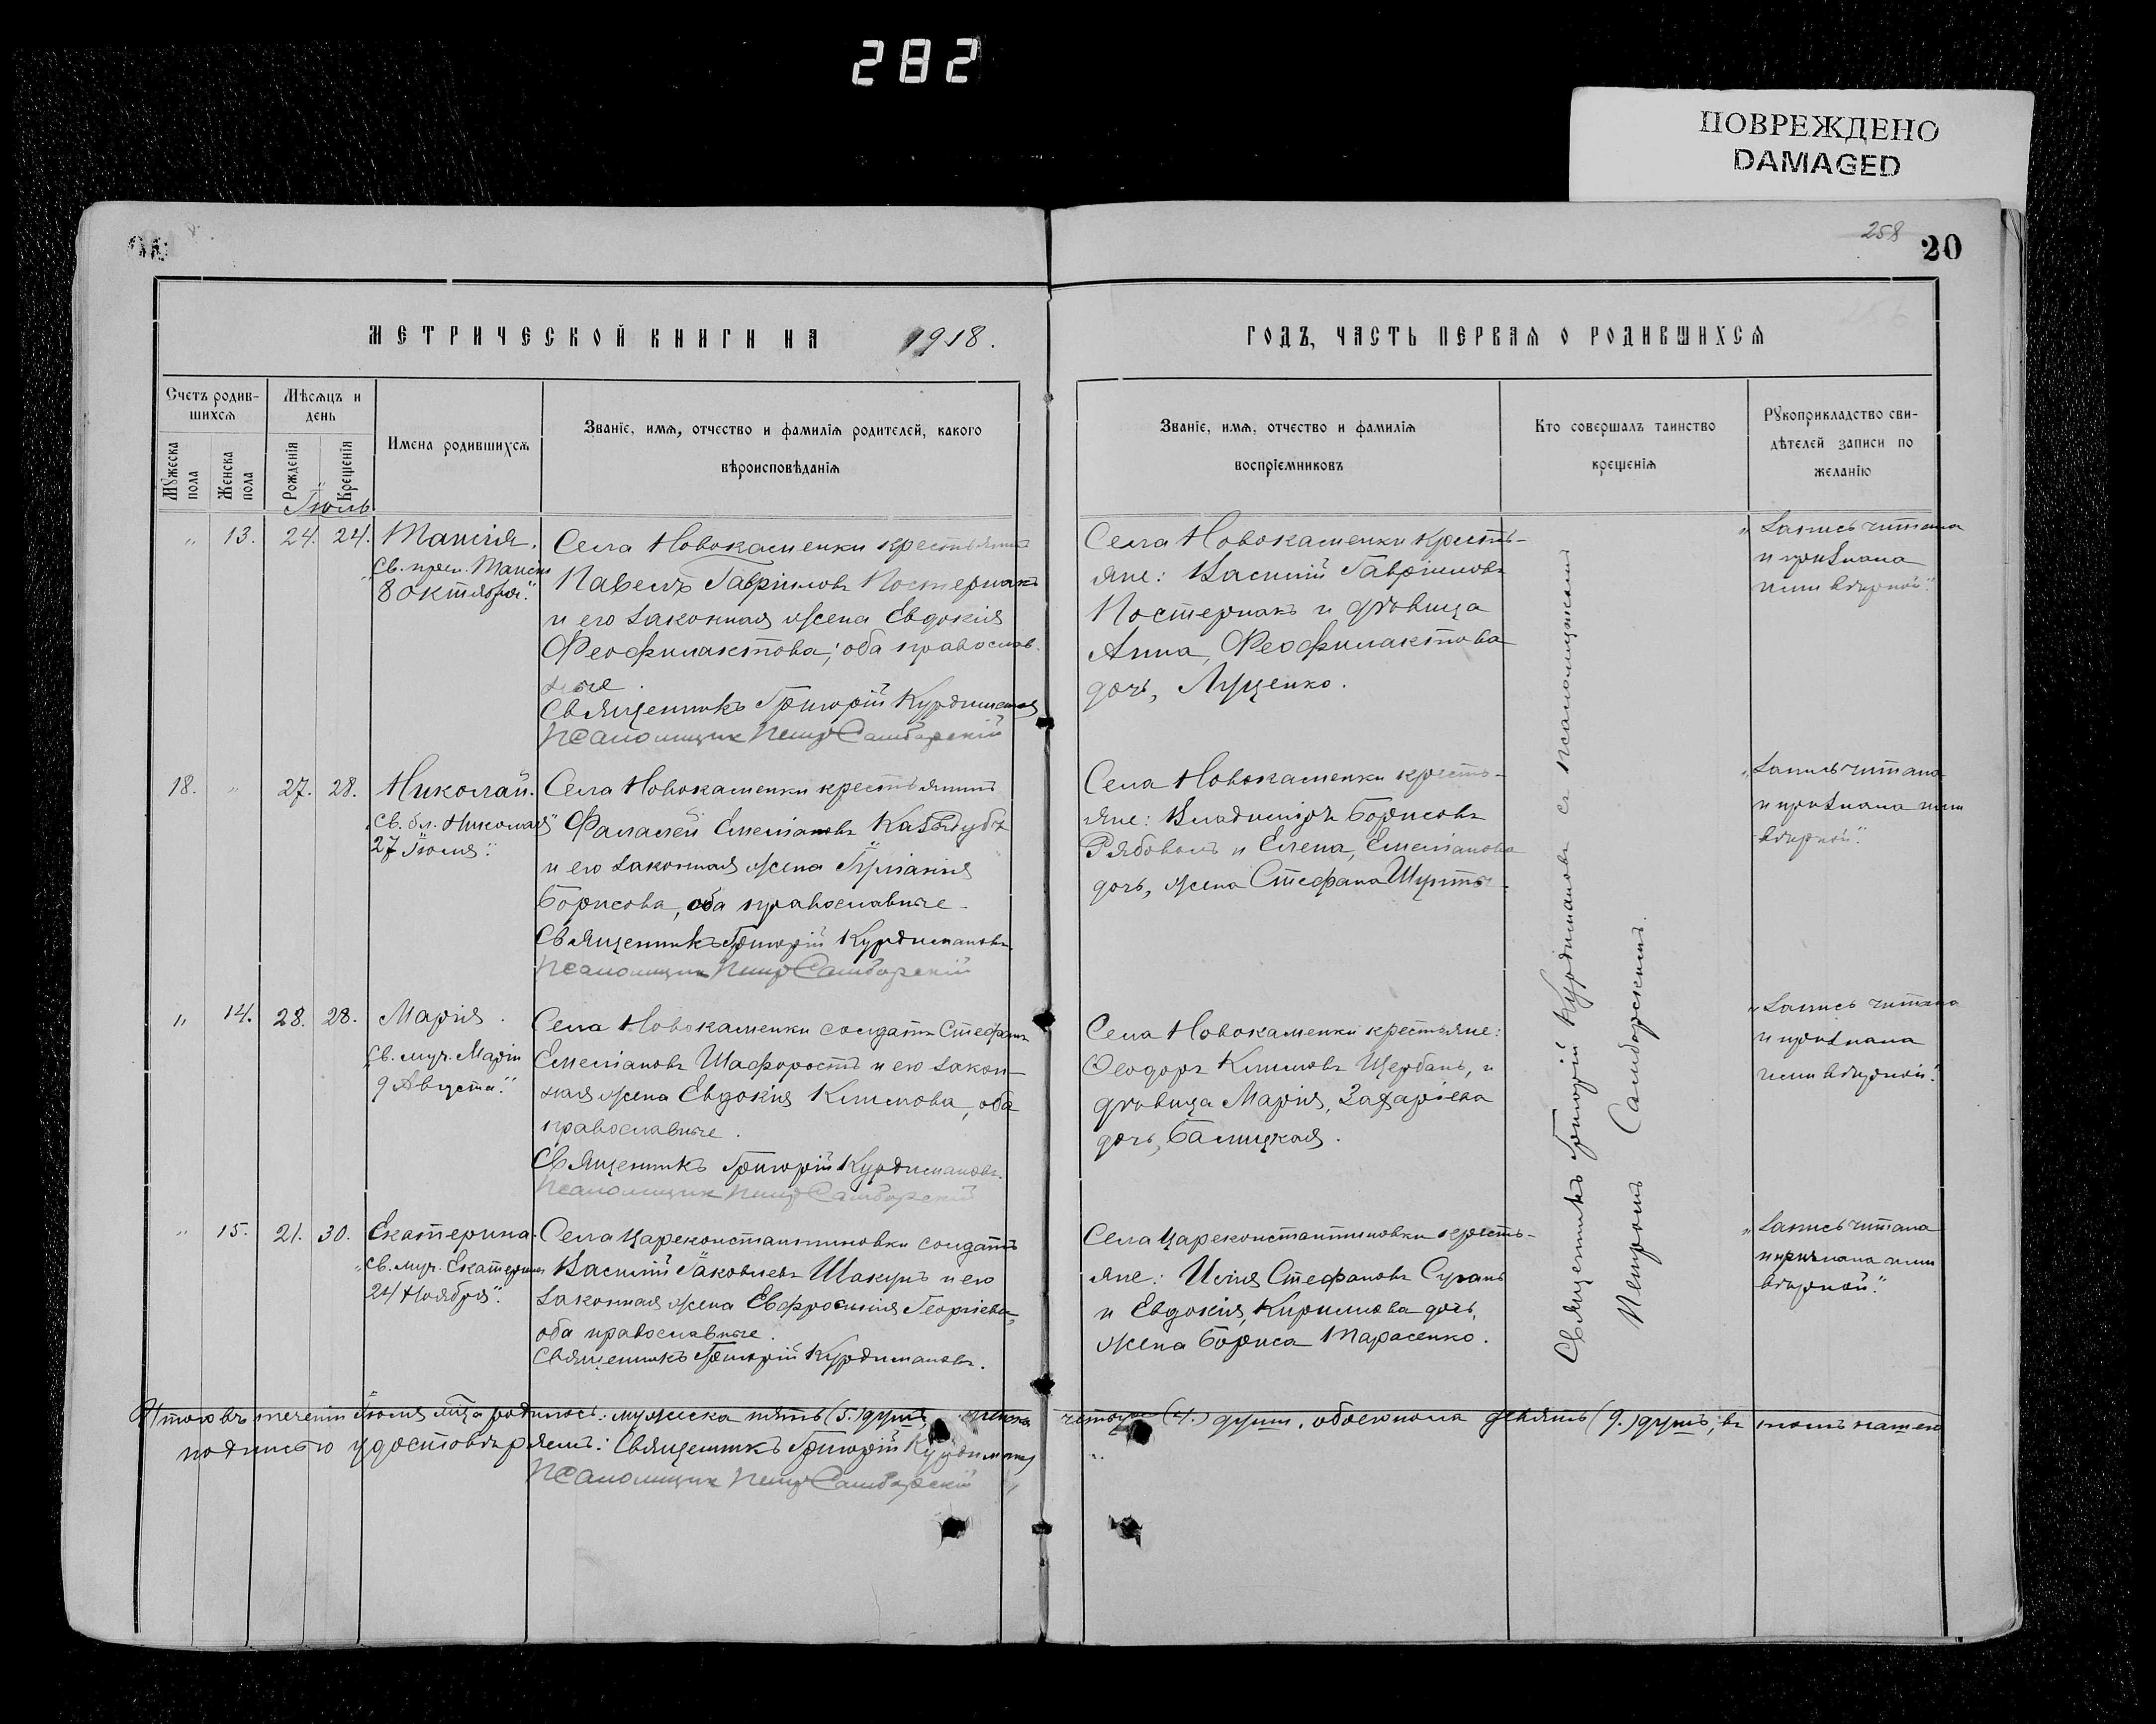 282
ПОВРЕЖДЕНО
DAMAGED
258
20
МЕТРИЧЕСКОЙ КНИГИ НА 1918.
ГОДЪ, ЧАСТЬ ПЕРВАЯ О РОДИВШИХСЯ
Счетъ родив-
шихся
Мѣсяцъ и
день
Имена родившихся
Званіе, имя, отчество и фамилія родителей, какого
вѣроисповѣданія
Званіе, имя, отчество и фамилія
воспріемниковъ
Кто совершалъ таинство
крещенія
Рукоприкладство сви-
дѣтелей записи по
желанію
Мужеска
пола
Женска
пола
Рожденія
Крещенія
Іюль
" 13. 24. 24. Таисія.
"Св. преп. Таисіи
8 октября".
Села Новокаменки крестьянинъ
Павелъ Гавріиловъ Постернакъ
и его законная жена Евдокія
Феофилактова; оба православ-
ные.
Священникъ Григорій Курдимановъ
Псаломщик Петр Самборскій
Села Новокаменки кресть-
яне: Василій Гавріиловъ
Постернакъ и дѣвица
Анна, Феофилактова
дочь, Луценко.
"Запись читана
и признана
нами вѣрной".
18. " 27. 28. Николай.
"Св. бл. Николая
27 Іюля".
Села Новокаменки крестьянинъ
Фалалей Емеліановъ
и его законная жена Іуліанія
Борисова, оба православные.
Священникъ Григорій Курдимановъ
Псаломщик Петр Самборскій
Села Новокаменки кресть-
яне: Владиміръ Борисовъ
Рябоволъ и Елена, Емеліанова
дочь, жена Стефана
"Запись читана
и признана нами
вѣрной".
" 14. 28. 28. Марія.
"Св. муч. Маріи
9 Августа".
Села Новокаменки солдатъ Стефанъ
Емеліановъ Шафоростъ и его закон-
ная жена Евдокія Климова, оба
православные.
Священникъ Григорій Курдимановъ.
Псаломщик Петр Самборскій
Села Новокаменки крестьяне:
Ѳеодоръ Климовъ Щербань, и
дѣвица Марія, Захаріева
дочь, Балицкая.
"Запись читана
и признана
нами вѣрной".
" 15. 21. 30. Екатерина.
"Св. муч. Екатерины
24 Ноября".
Села Цареконстантиновки солдатъ
Василій Іаковлевъ Шакунъ и его
законная жена Евфросинія Георгіева,
оба православные.
Священникъ Григорій Курдимановъ.
Села Цареконстантиновки кресть-
яне: Илія Стефановъ
и Евдокія, Кириллова дочь,
жена Бориса Тарасенко.
"Запись читана
и признана нами
вѣрной".
Священникъ Григорій Курдимановъ съ псаломщикомъ
Петромъ Самборскимъ.
Итого въ теченіи Іюля м-ца родилось: мужеска пять (5.) душъ, женска четыре (4.) душъ, обоего пола девять (9.) душъ; въ томъ нашею
подписью удостовѣряемъ: Священникъ Григорій Курдимановъ
Псаломщик Петр Самборскій